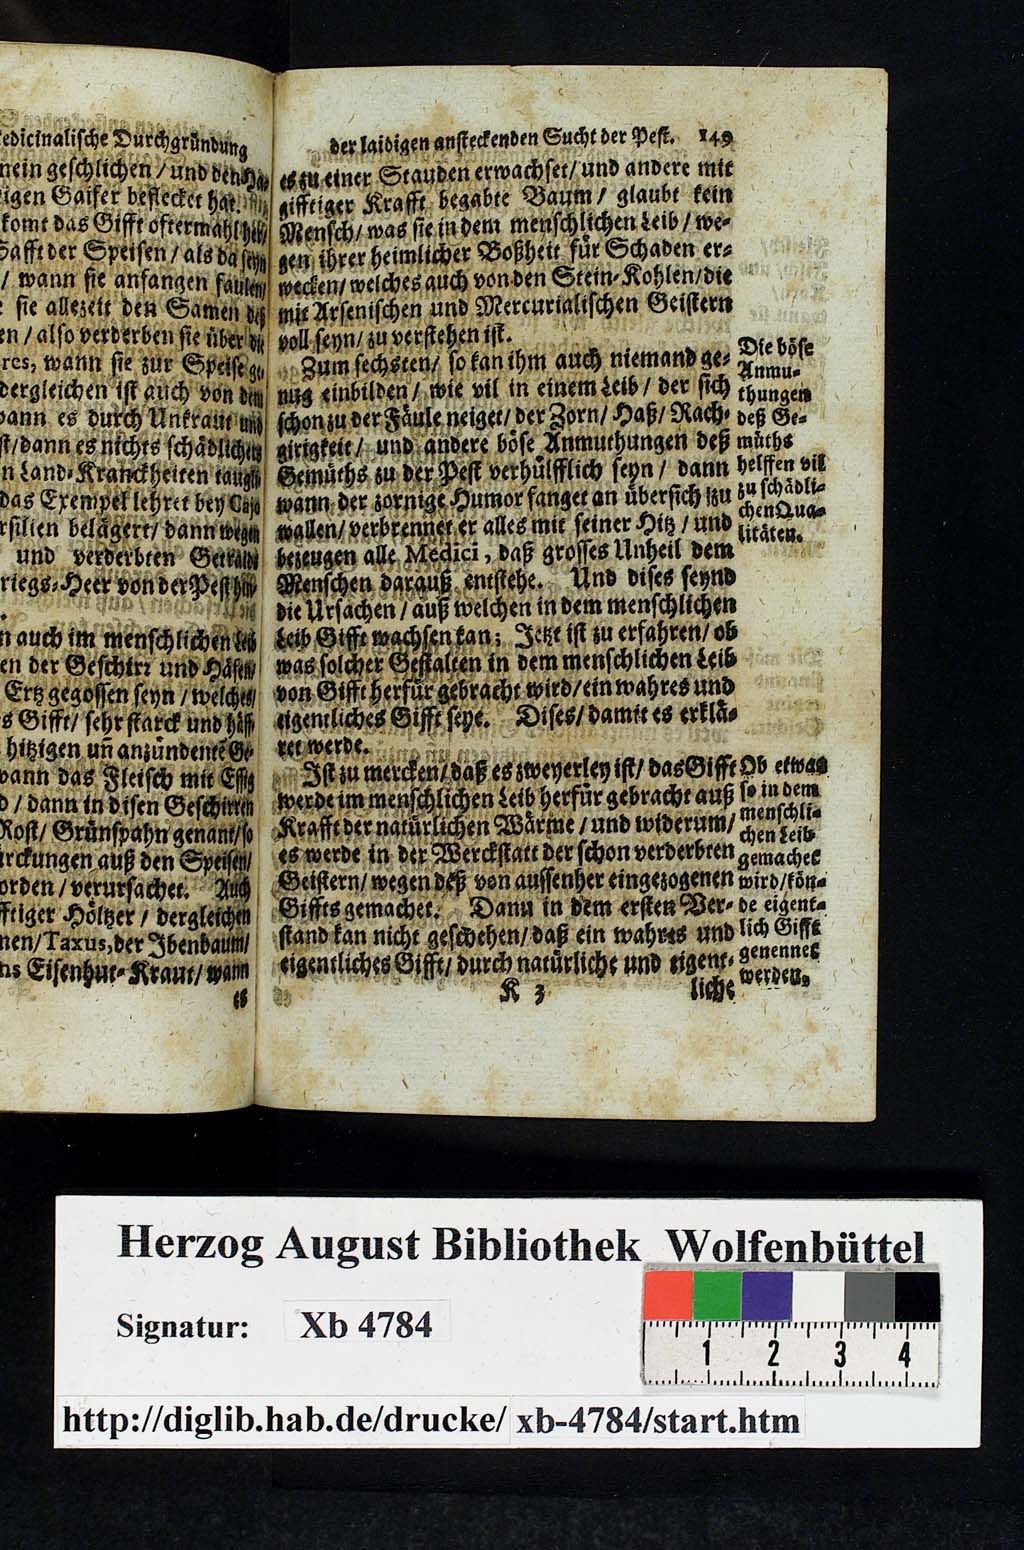 edicinalische Durchgründung
nein geschlichen / und den
igen Gaifer beflecket hat.
komt das Gifft oftermahl
Safft der Speisen / als da seyn
/ wann sie anfangen faulen/
sie allezeit den Samen deß
en / also verderben sie über die
res, wann sie zur Speise ge
dergleichen ist auch von dem
wann es durch Unkraut und
st/ dann es nichts schädlichers
n Land-Kranckheiten
das Exempel lehret bey
rsilien belägert/ dann wegen
und verderbten Getraids
riegs-Heer von der Pest
.
n auch im menschlichen Leib
en der Geschirr und Häfen/
Ertz gegossen seyn / welches/
s Gifft/ sehr starck und
hitzigen uñ anzündentẽ Ge-
wann das Fleisch mit Essig
d / dann in disen Geschirren
Rost/ Grünspahn genant/ so
ürckungen auß den Speisen/
orden / verursachet. Auch
fftiger Höltzer / dergleichen
nen/ Taxus, der Ibenbaum/
ns Eisenhut-Kraut/ wann
es
der laidigen ansteckenden Sucht der Pest. 149
es zu einer Stauden erwachset/ und andere mit
gifftiger Krafft begabte Baum / glaubt kein
Mensch/ was sie in dem menschlichen Leib / we-
gen ihrer heimlicher Boßheit für Schaden er-
wecken/ welches auch von den Stein-Kohlen/ die
mit Arsenischen und Mercurialischen Geistern
voll seyn/ zu verstehen ist.
Zum sechsten/ so kan ihm auch niemand ge-
nug einbilden / wie vil in einem Leib / der sich
schon zu der Fäule neiget/ der Zorn/ Haß/ Rach-
girigkeit/ und andere böse Anmuthungen deß
Gemüths zu der Pest verhülfflich seyn / dann
wann der zornige Humor fanget an übersich zu
wallen/ verbrennet er alles mit seiner Hitz / und
bezeugen alle Medici, daß grosses Unheil dem
Menschen darauß entstehe. Und dises seynd
die Ursachen / auß welchen in dem menschlichen
Leib Gifft wachsen kan; Jetzt ist zu erfahren/ ob
was solcher Gestalten in dem menschlichen Leib
von Gifft herfür gebracht wird/ ein wahres und
eigentliches Gifft seye. Dises/ damit es erklä-
ret werde.
Ist zu mercken/ daß es zweyerley ist/ das Gifft
werde im menschlichen Leib herfür gebracht auß
Krafft der natürlichen Wärme / und widerum/
es werde in der Werckstatt der schon verderbten
Geistern/ wegen deß von aussenher eingezogenen
Giffts gemachet. Dann in dem ersten Ver-
stand kan nicht geschehen/ daß ein wahres und
eigentliches Gifft/ durch natürliche und eigent-
K 3 liche
Die böse
Anmu-
thungen
deß Ge-
müths
helffen vil
zu schädli-
chen Qua-
litäten.
Ob etwas
so in dem
menschli-
chen Leib
gemachet
wird/ kön-
de eigent-
lich Gifft
genennet
werden.
Herzog August Bibliothek Wolfenbüttel
Signatur: Xb 4784
1 2 3 4
http://diglib.hab.de/drucke/ xb-4784/start.htm